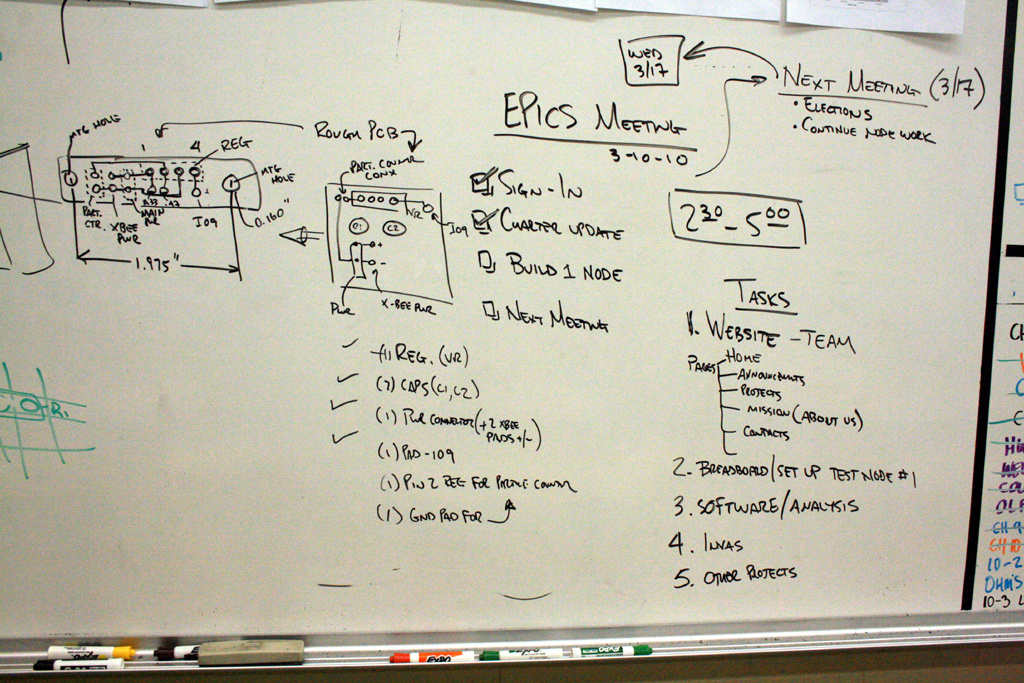 WED
3/17
NEXT MEETING (3/17)
• ELECTIONS
• CONTINUE NODE WORK
EPICS MEETING
3-10-10
2:30 - 5:00
SIGN-IN
CHARTER UPDATE
BUILD 1 NODE
NEXT MEETING
ROUGH PCB
MTG HOLE
1
4
REG
MTG
HOLE
0.160"
PART.
CTR.
XBEE
PWR
MAIN
PWR
IO9
1.975"
PART. COUNTR
CONX
VR
IO9
C1
C2
+
-
PWR
X-BEE PWR
(1) REG. (VR)
(2) CAPS (C1, C2)
(1) PWR CONNECTOR (+2 XBEE
PADS +/-)
(1) PAD - IO9
(1) PIN 2 REG FOR PARTICLE COUNTR
(1) GND PAD FOR
TASKS
1. WEBSITE - TEAM
PAGES
HOME
ANNOUNCEMENTS
PROJECTS
MISSION (ABOUT US)
CONTACTS
2. BREADBOARD/SET UP TEST NODE #1
3. SOFTWARE/ANALYSIS
4. INVAS
5. OTHER PROJECTS
R1
CH 9
CH 10
10-2
OHM'S
10-3
EXPO